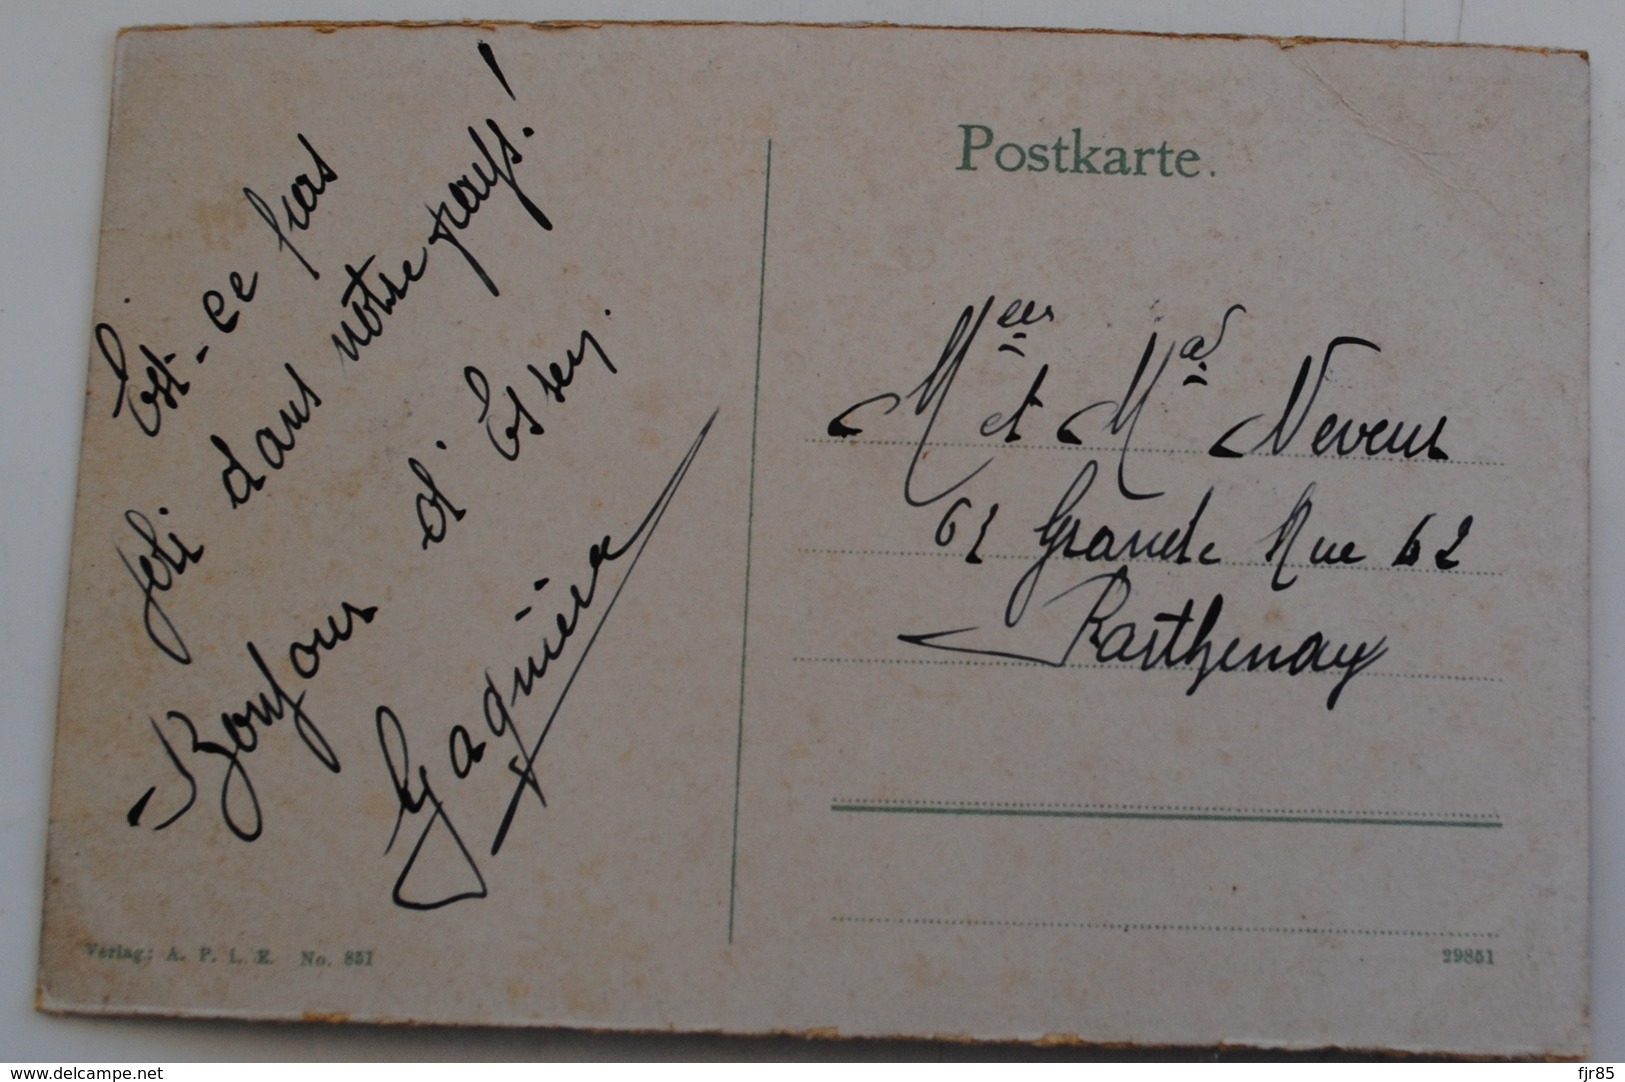 Est-ce pas
joli dans notre pays!
Bonjour d'Essen.
Postkarte.
et Neveur
62 Grande Rue 62
Parthenay
Verlag: A. P. i. E. No. 851
29851
www.delcampe.net
fjr85